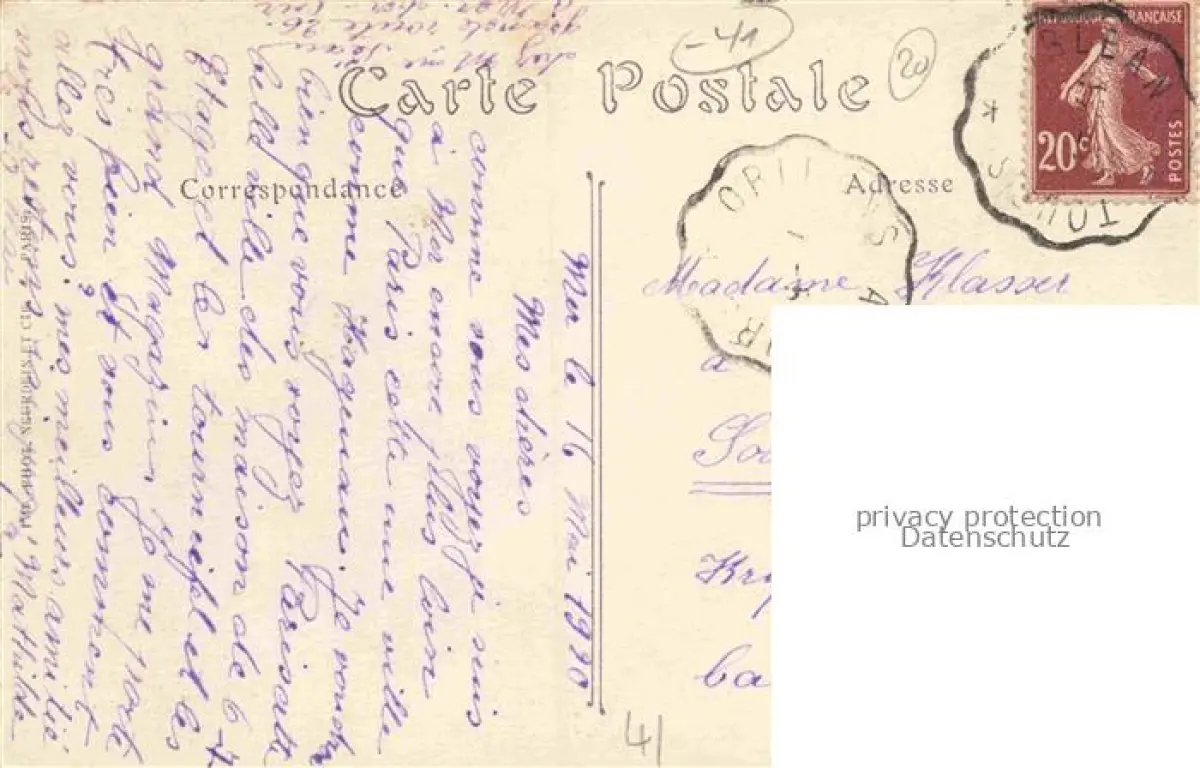 -41
20
Carte Postale
Correspondance
Adresse
RÉPUBLIQUE FRANÇAISE
20c
POSTES
ORLEANS
TOURS
ORLEANS A
Mer le 16 Mai 1920
Mes chères
comme vous voyez je suis
à Mer encore plus loin
que Paris cette une ville
comme Haguenau. Je voudr
bien que vous voyez Paris
belle ville des maisons de 6 7
Etages et les tour eifel et les
grand Magazin. Je me porte
très bien et vous comment
allez vous? mes meilleurs amitié
Mathilde
chez Mme
grande route 26
Mer
Madame Klasser
a
Kry
ba
PHOT. NEURDEIN ET CIE. PARIS
41
privacy protection
Datenschutz